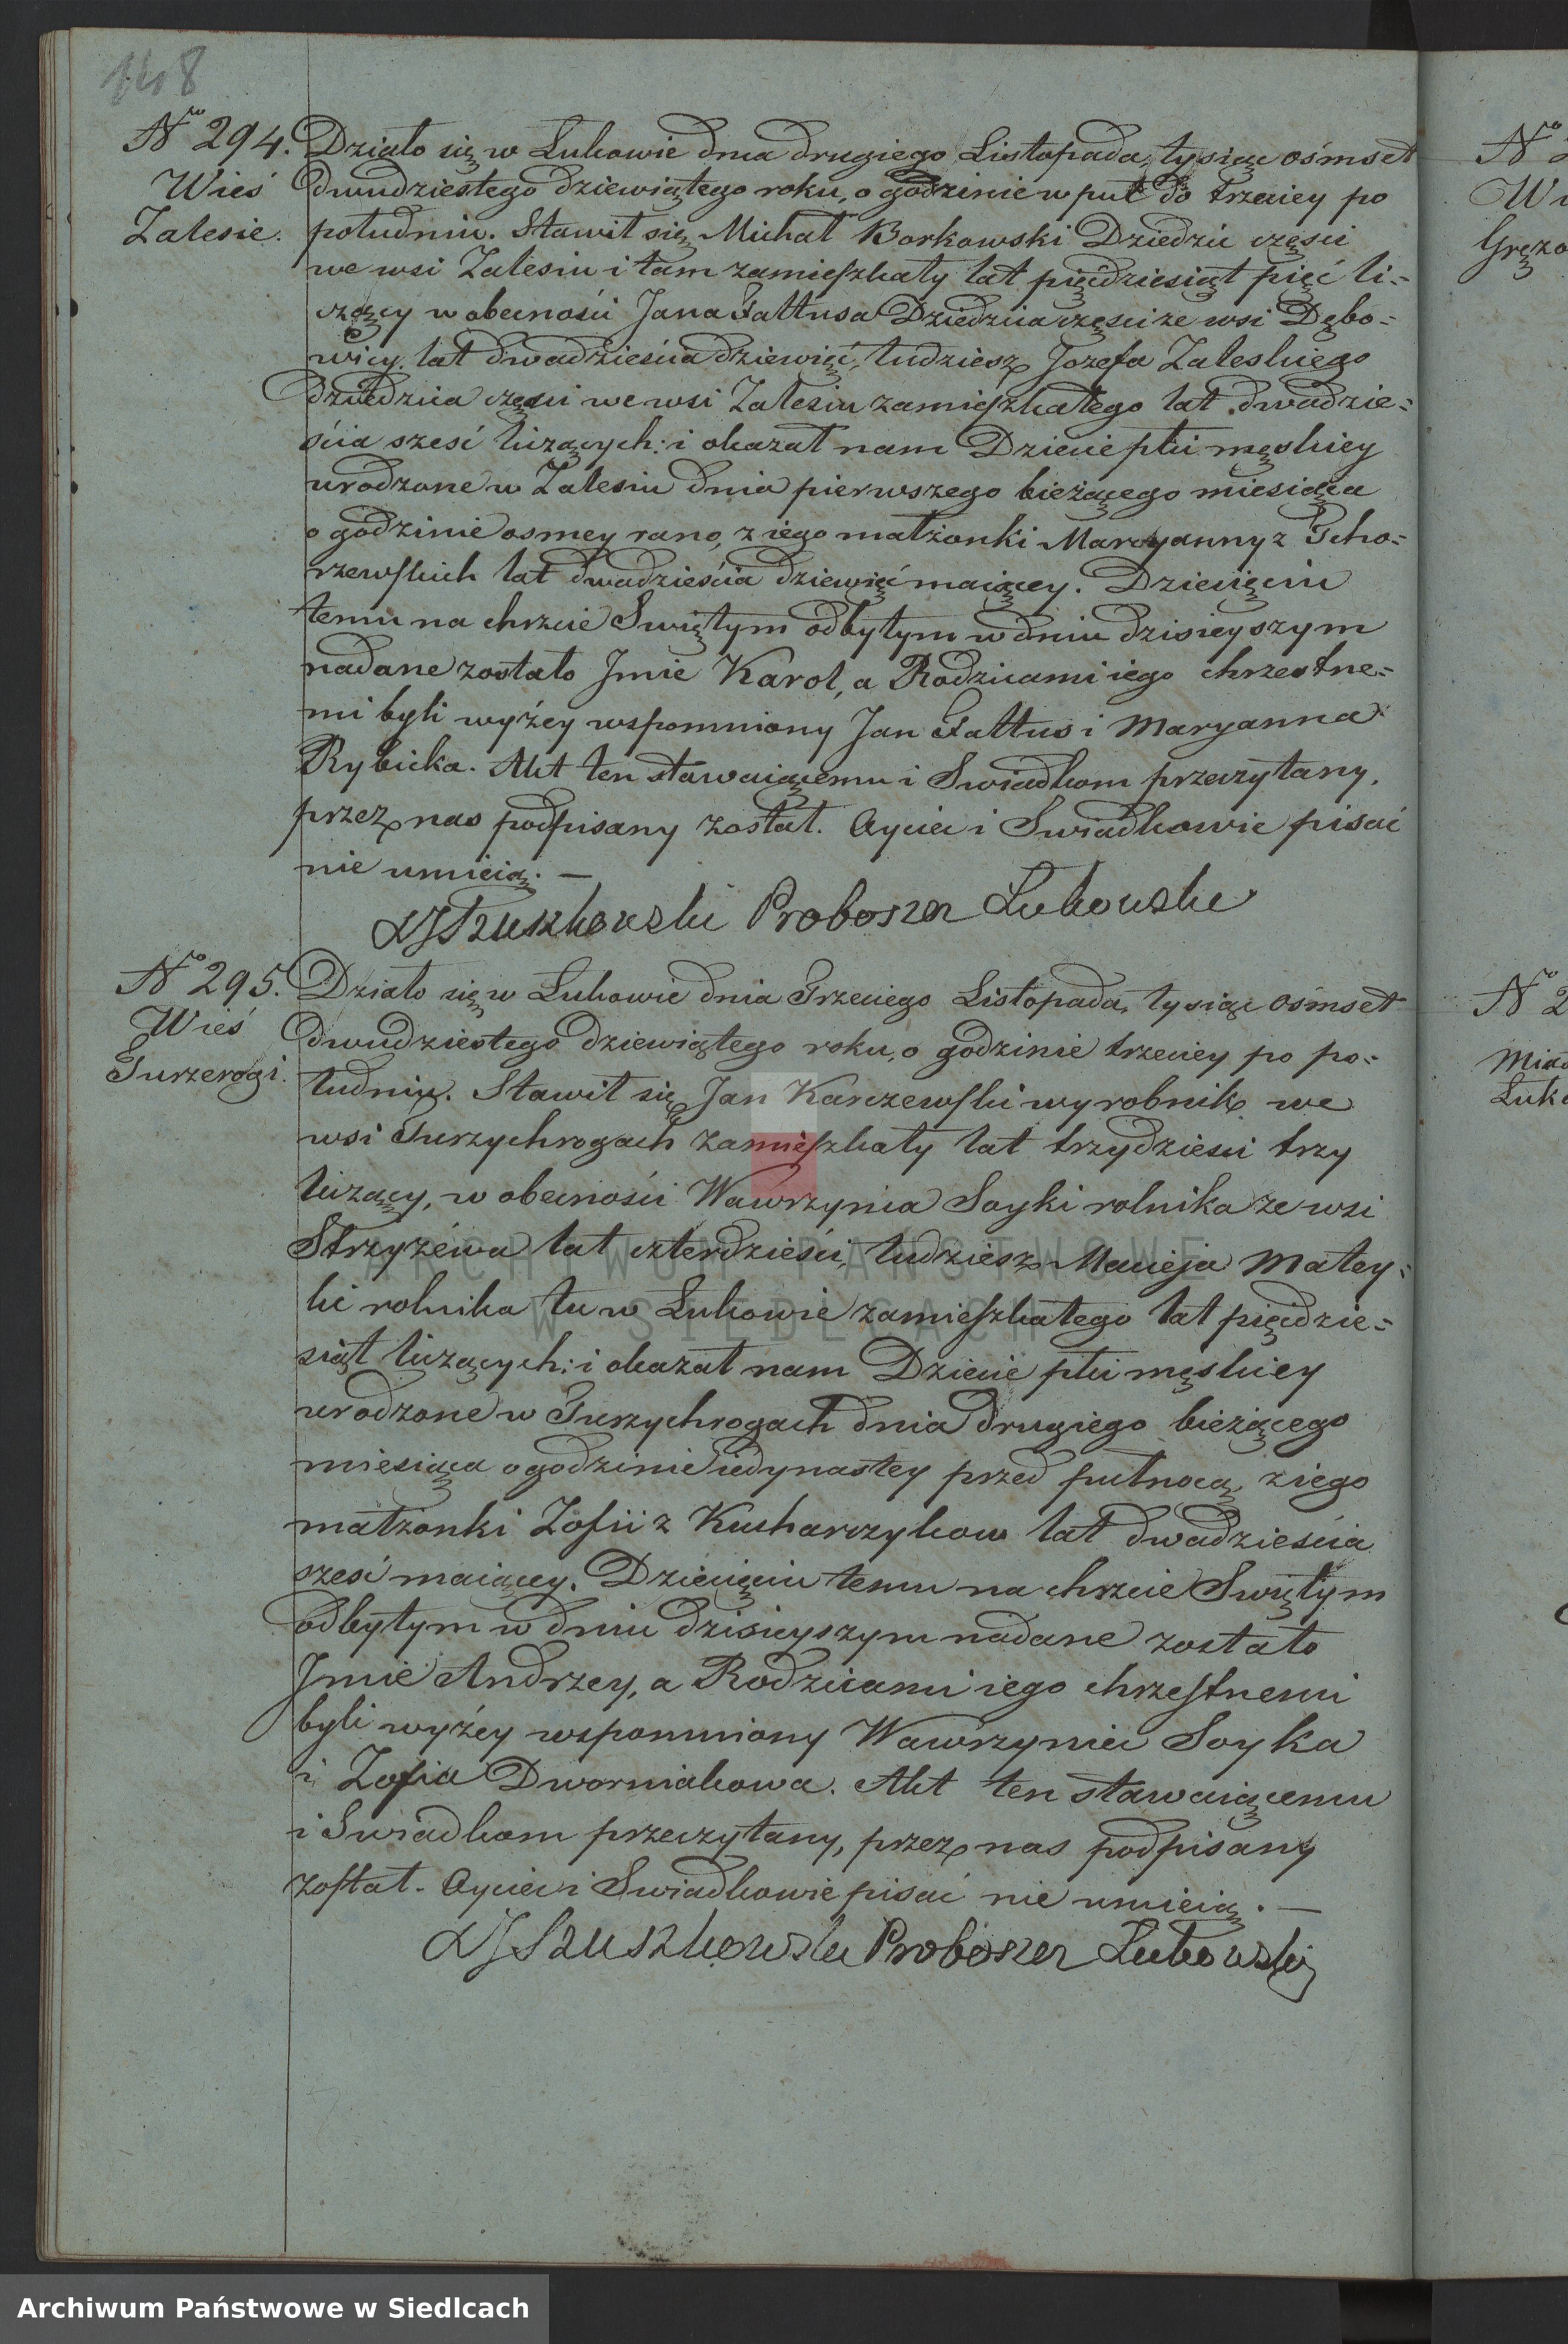 148
No 294.
Wieś
Zalesie.
Działo się w Łukowie dnia drugiego Listopada, tysiąc ośmset
dwudziestego dziewiątego roku, o godzinie w puł do trzeciey po
południu. Stawił się Michał Borkowski Dziedzic częsci
we wsi Zalesiu i tam zamieszkały lat pięćdziesiąt pięć li-
czący w obecności Jana Fattusa Dziedzica częsci ze wsi Dębo-
wicy, lat dwadzieścia dziewięć, tudziesz Jozefa Zaleskiego
dziedzica częsci we wsi Zalesiu zamieszkałego lat dwadzie-
ścia szesć liczących: i okazał nam Dziecie płci męskiey
urodzone w Zalesiu dnia pierwszego bieżącego miesiąca
o godzinie osmey rano, z iego małżonki Maryanny z Gcho-
rzewskich lat dwadzieścia dziewięć maiącey. Dziecięciu
temu na chrzcie Swiętym odbytym w dniu dzisieyszym
nadane zostało Jmie Karol, a Rodzicami iego chrzestne-
mi byli wyżey wspomniony Jan Fattus i Maryanna
Rybicka. Akt ten stawaiącemu i Swiadkom przeczytany,
przez nas podpisany został. Oyciec i Swiadkowie pisać
nie umieią. —
XJSzuszkowski Proboszcz Łukowski
No 295.
Wieś
Turzerogi.
Działo się w Łukowie dnia Trzeciego Listopada, tysiąc ośmset
dwudziestego dziewiątego roku, o godzinie trzeciey po po-
łudniu. Stawił się Jan Karczewski wyrobnik we
wsi Turzychrogach zamieszkały lat trzydzieści trzy
liczący, w obecności Wawrzynca Soyki rolnika ze wsi
Strzyżewa lat czterdzieści, tudziesz Macieja Matey-
ki rolnika tu w Łukowie zamieszkałego lat pięćdzie-
siąt liczących: i okazał nam Dziecie płci męskiey
urodzone w Turzychrogach dnia drugiego bieżącego
miesiąca o godzinie iedynastey przed pułnocą, z iego
małżonki Zofii z Kucharczykow lat dwadzieścia
szesć maiącey. Dziecięciu temu na chrzcie Swiętym
odbytym w dniu dzisieyszym nadane zostało
Jmie Andrzey, a Rodzicami iego chrzestnemi
byli wyżey wspomniony Wawrzyniec Soyka
i Zofia Dworniakowa. Akt ten stawaiącemu
i Swiadkom przeczytany, przez nas podpisany
został. Oyciec i Swiadkowie pisać nie umieią. —
XJSzuszkowski Proboszcz Łukowski
ARCHIWUM PAŃSTWOWE
W SIEDLCACH
Archiwum Państwowe w Siedlcach